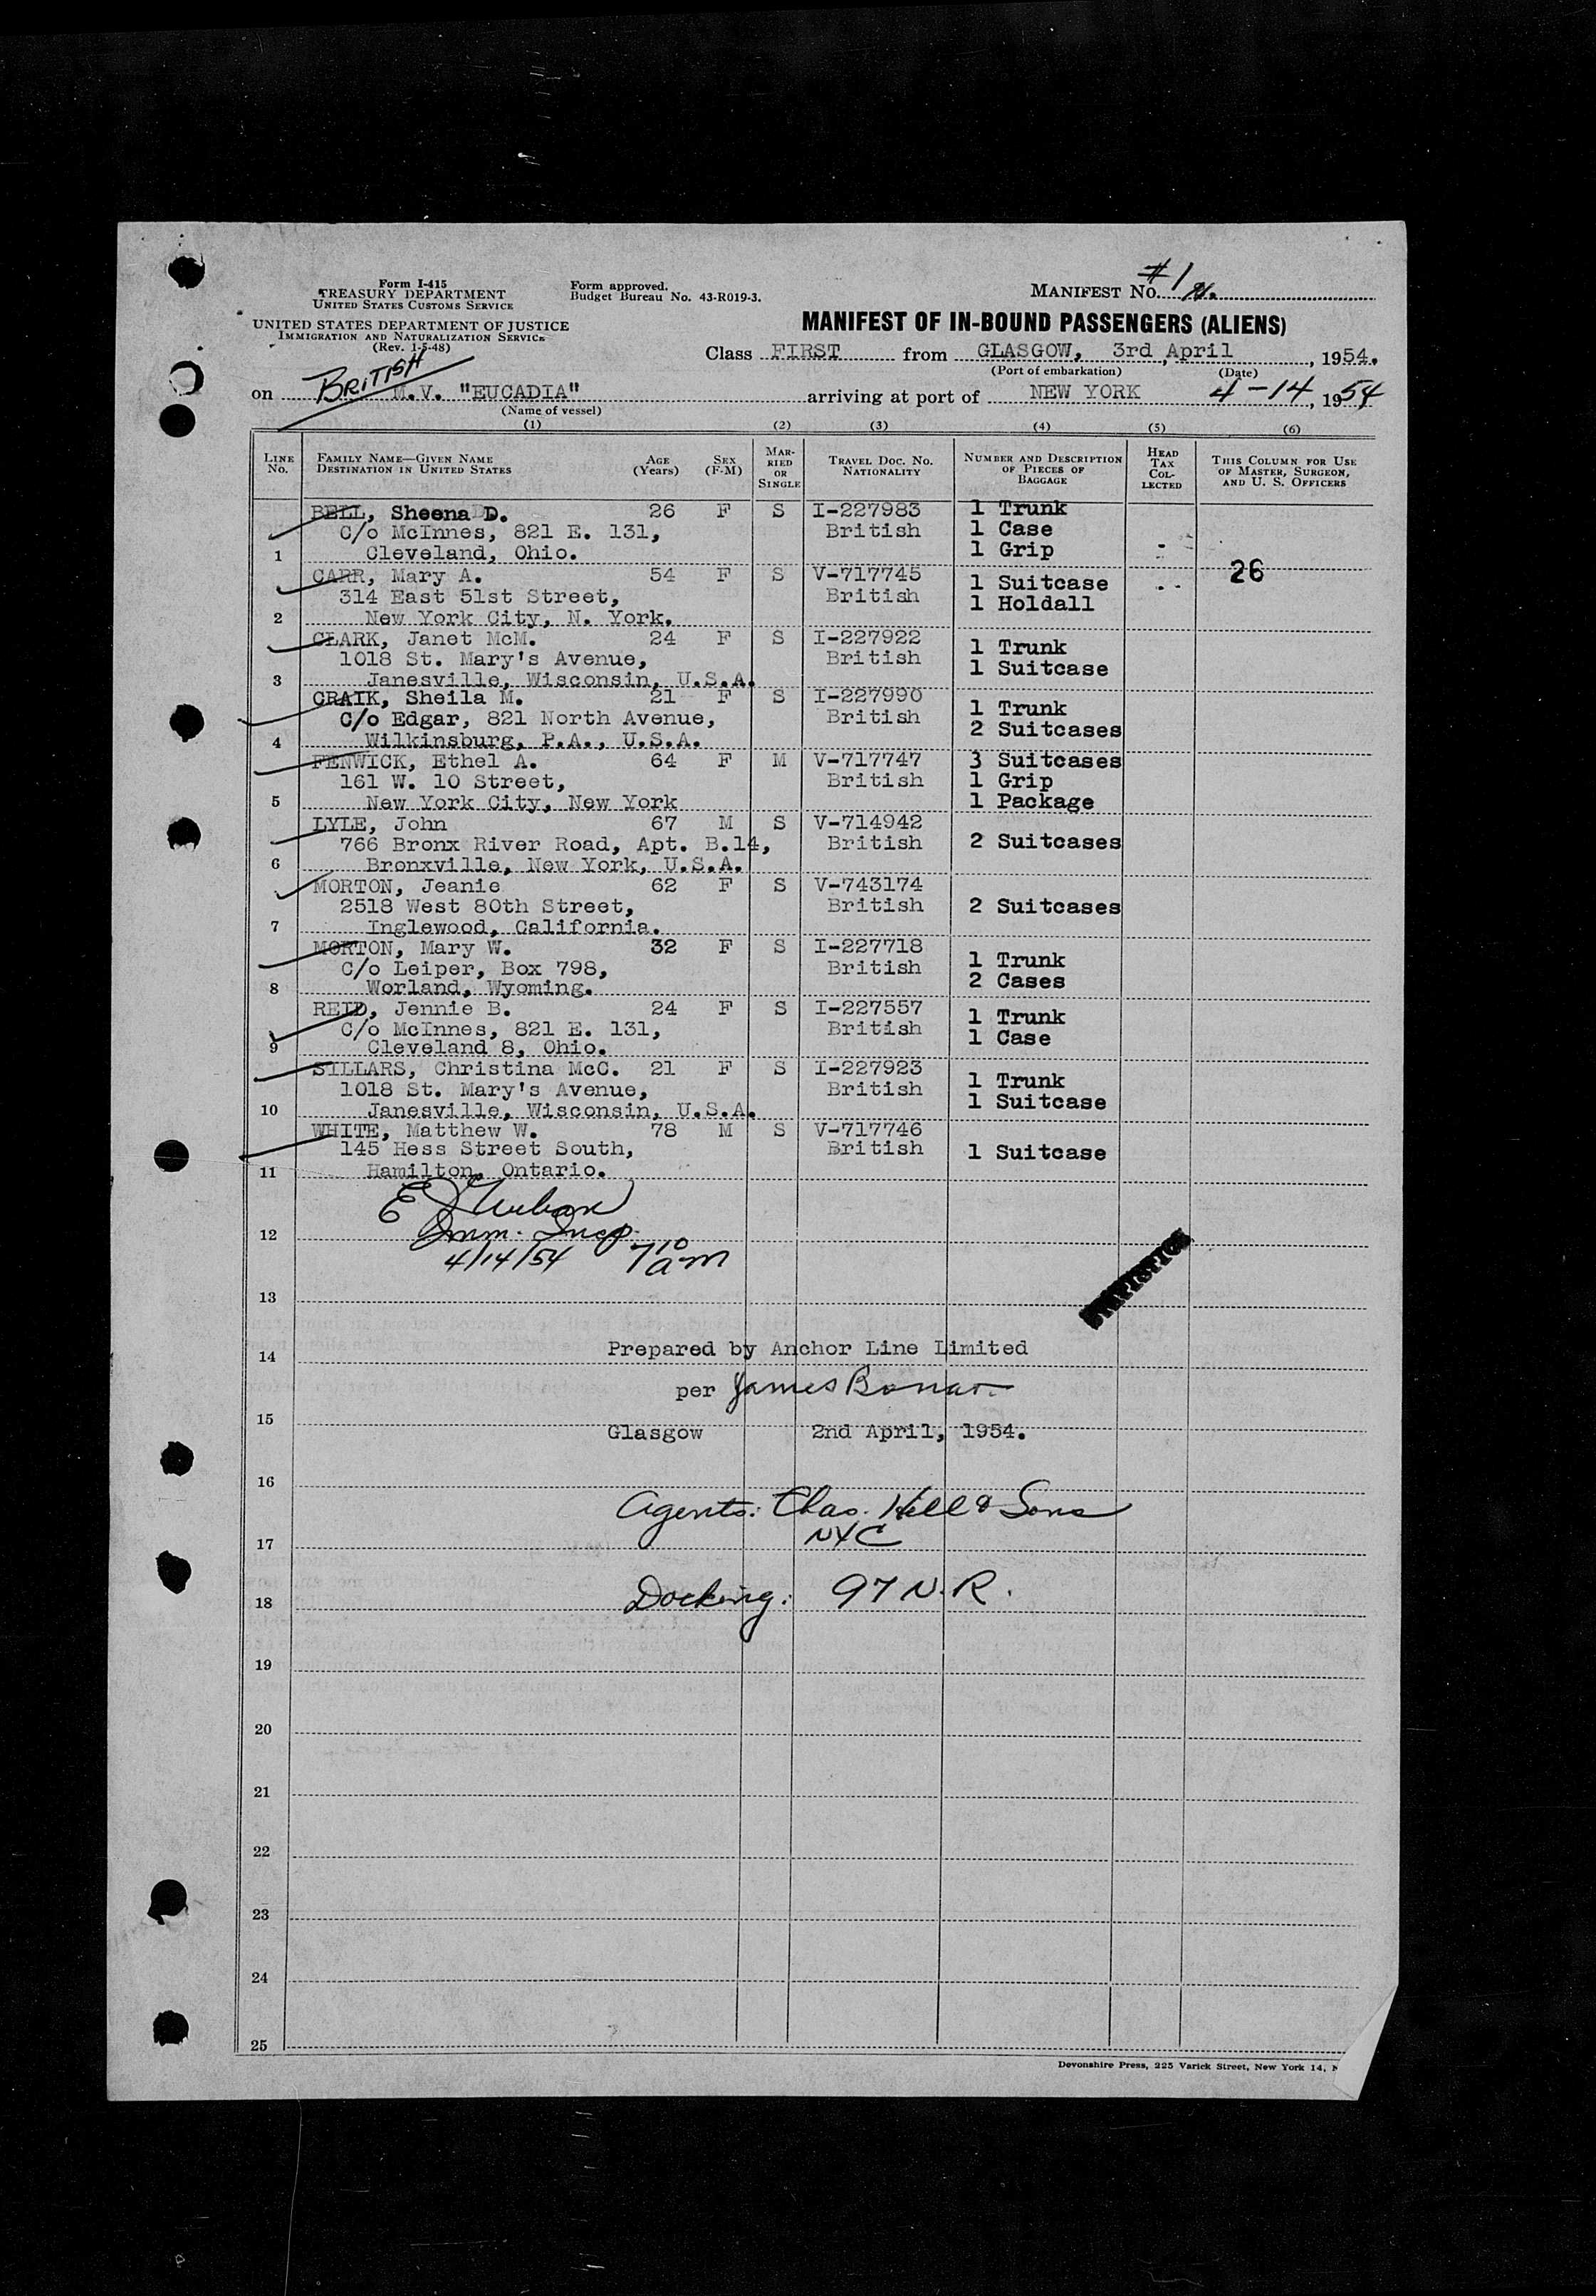 Form I-415
TREASURY DEPARTMENT
UNITED STATES CUSTOMS SERVICE
Form approved.
Budget Bureau No. 43-R019-3.
MANIFEST No. #1
UNITED STATES DEPARTMENT OF JUSTICE
IMMIGRATION AND NATURALIZATION SERVICE
(Rev. 1-5-48)
MANIFEST OF IN-BOUND PASSENGERS (ALIENS)
Class FIRST from GLASGOW, 3rd April, 1954.
(Port of embarkation) (Date)
on BRITISH M.V. "EUCADIA" arriving at port of NEW YORK 4-14, 1954
(Name of vessel)
(1) (2) (3) (4) (5) (6)
LINE No. FAMILY NAME—GIVEN NAME DESTINATION IN UNITED STATES AGE (Years) SEX (F-M) MARRIED OR SINGLE TRAVEL DOC. NO. NATIONALITY NUMBER AND DESCRIPTION OF PIECES OF BAGGAGE HEAD TAX COLLECTED THIS COLUMN FOR USE OF MASTER, SURGEON, AND U. S. OFFICERS
BELL, Sheena D. 26 F S I-227983 1 Trunk
C/o McInnes, 821 E. 131, British 1 Case
1 Cleveland, Ohio. 1 Grip
CARR, Mary A. 54 F S V-717745 1 Suitcase 26
314 East 51st Street, British 1 Holdall
2 New York City, N. York.
CLARK, Janet McM. 24 F S I-227922 1 Trunk
1018 St. Mary's Avenue, British 1 Suitcase
3 Janesville, Wisconsin, U.S.A.
CRAIK, Sheila M. 21 F S I-227990 1 Trunk
C/o Edgar, 821 North Avenue, British 2 Suitcases
4 Wilkinsburg, P.A., U.S.A.
FENWICK, Ethel A. 64 F M V-717747 3 Suitcases
161 W. 10 Street, British 1 Grip
5 New York City, New York 1 Package
LYLE, John 67 M S V-714942
766 Bronx River Road, Apt. B.14, British 2 Suitcases
6 Bronxville, New York, U.S.A.
MORTON, Jeanie 62 F S V-743174
2518 West 80th Street, British 2 Suitcases
7 Inglewood, California.
MORTON, Mary W. 32 F S I-227718 1 Trunk
C/o Leiper, Box 798, British 2 Cases
8 Worland, Wyoming.
REID, Jennie B. 24 F S I-227557 1 Trunk
C/o McInnes, 821 E. 131, British 1 Case
9 Cleveland 8, Ohio.
SILLARS, Christina McC. 21 F S I-227923 1 Trunk
1018 St. Mary's Avenue, British 1 Suitcase
10 Janesville, Wisconsin, U.S.A.
WHITE, Matthew W. 78 M S V-717746
145 Hess Street South, British 1 Suitcase
11 Hamilton, Ontario.
12 Imm. Insp.
4/14/54 7 10 am
13
14 Prepared by Anchor Line Limited
per James Bonar
15
Glasgow 2nd April, 1954.
16
Agents: Chas. Hill & Sons
17 NYC
18 Docking: 97 N.R.
19
20
21
22
23
24
25
Devonshire Press, 225 Varick Street, New York 14,